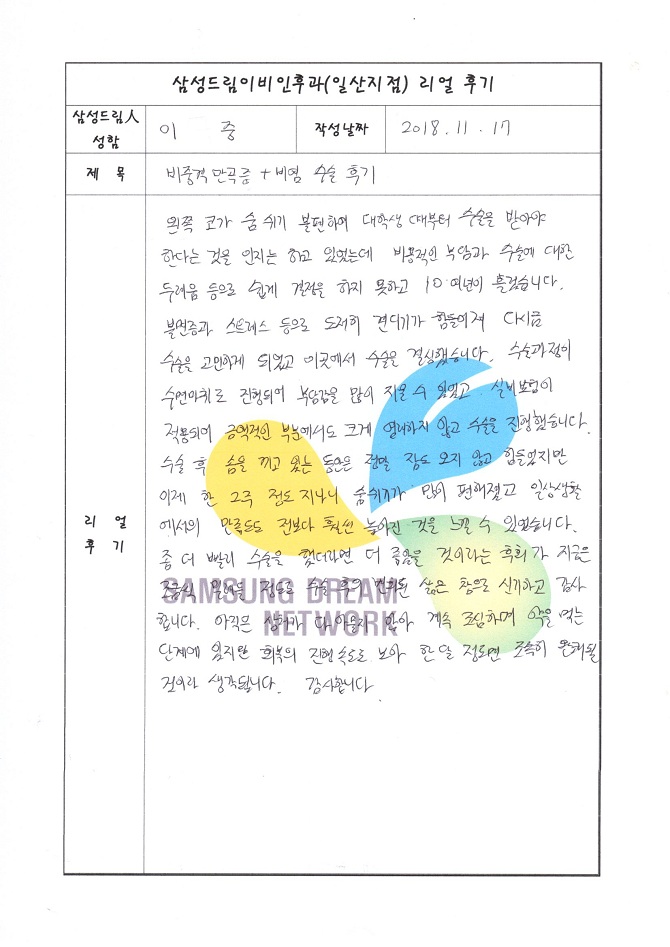 삼성드림이비인후과(일산지점) 리얼 후기
삼성드림人
성함
이 중
작성날짜
2018. 11. 17
제 목
비중격 만곡증 + 비염 수술 후기
리 얼
후 기
왼쪽 코가 숨 쉬기 불편하여 대학생 때부터 수술을 받아야
한다는 것을 인지는 하고 있었는데 비용적인 부담과 수술에 대한
두려움 등으로 쉽게 결정을 하지 못하고 10여년이 흘렀습니다.
불면증과 스트레스 등으로 도저히 견디기가 힘들어져 다시금
수술을 고민하게 되었고 이곳에서 수술을 결심했습니다. 수술과정이
수면마취로 진행되어 부담감을 많이 지울 수 있었고 실비보험이
적용되어 금액적인 부분에서도 크게 염려하지 않고 수술을 진행했습니다.
수술 후 솜을 끼고 있는 동안은 정말 잠도 오지 않고 힘들었지만
이제 한 2주 정도 지나니 숨쉬기가 많이 편해졌고 일상생활
에서의 만족도도 전보다 훨씬 높아진 것을 느낄 수 있었습니다.
좀 더 빨리 수술을 했더라면 더 좋았을 것이라는 후회가 지금은
정도로 수술 후의 삶은 참으로 신기하고 감사
합니다. 아직은 상처가 다 아물지 않아 계속 조심하며 약을 먹는
단계에 있지만 회복의 진행속도로 보아 한달 정도면 조속히 완쾌될
것이라 생각됩니다. 감사합니다
SAMSUNG DREAM
NETWORK